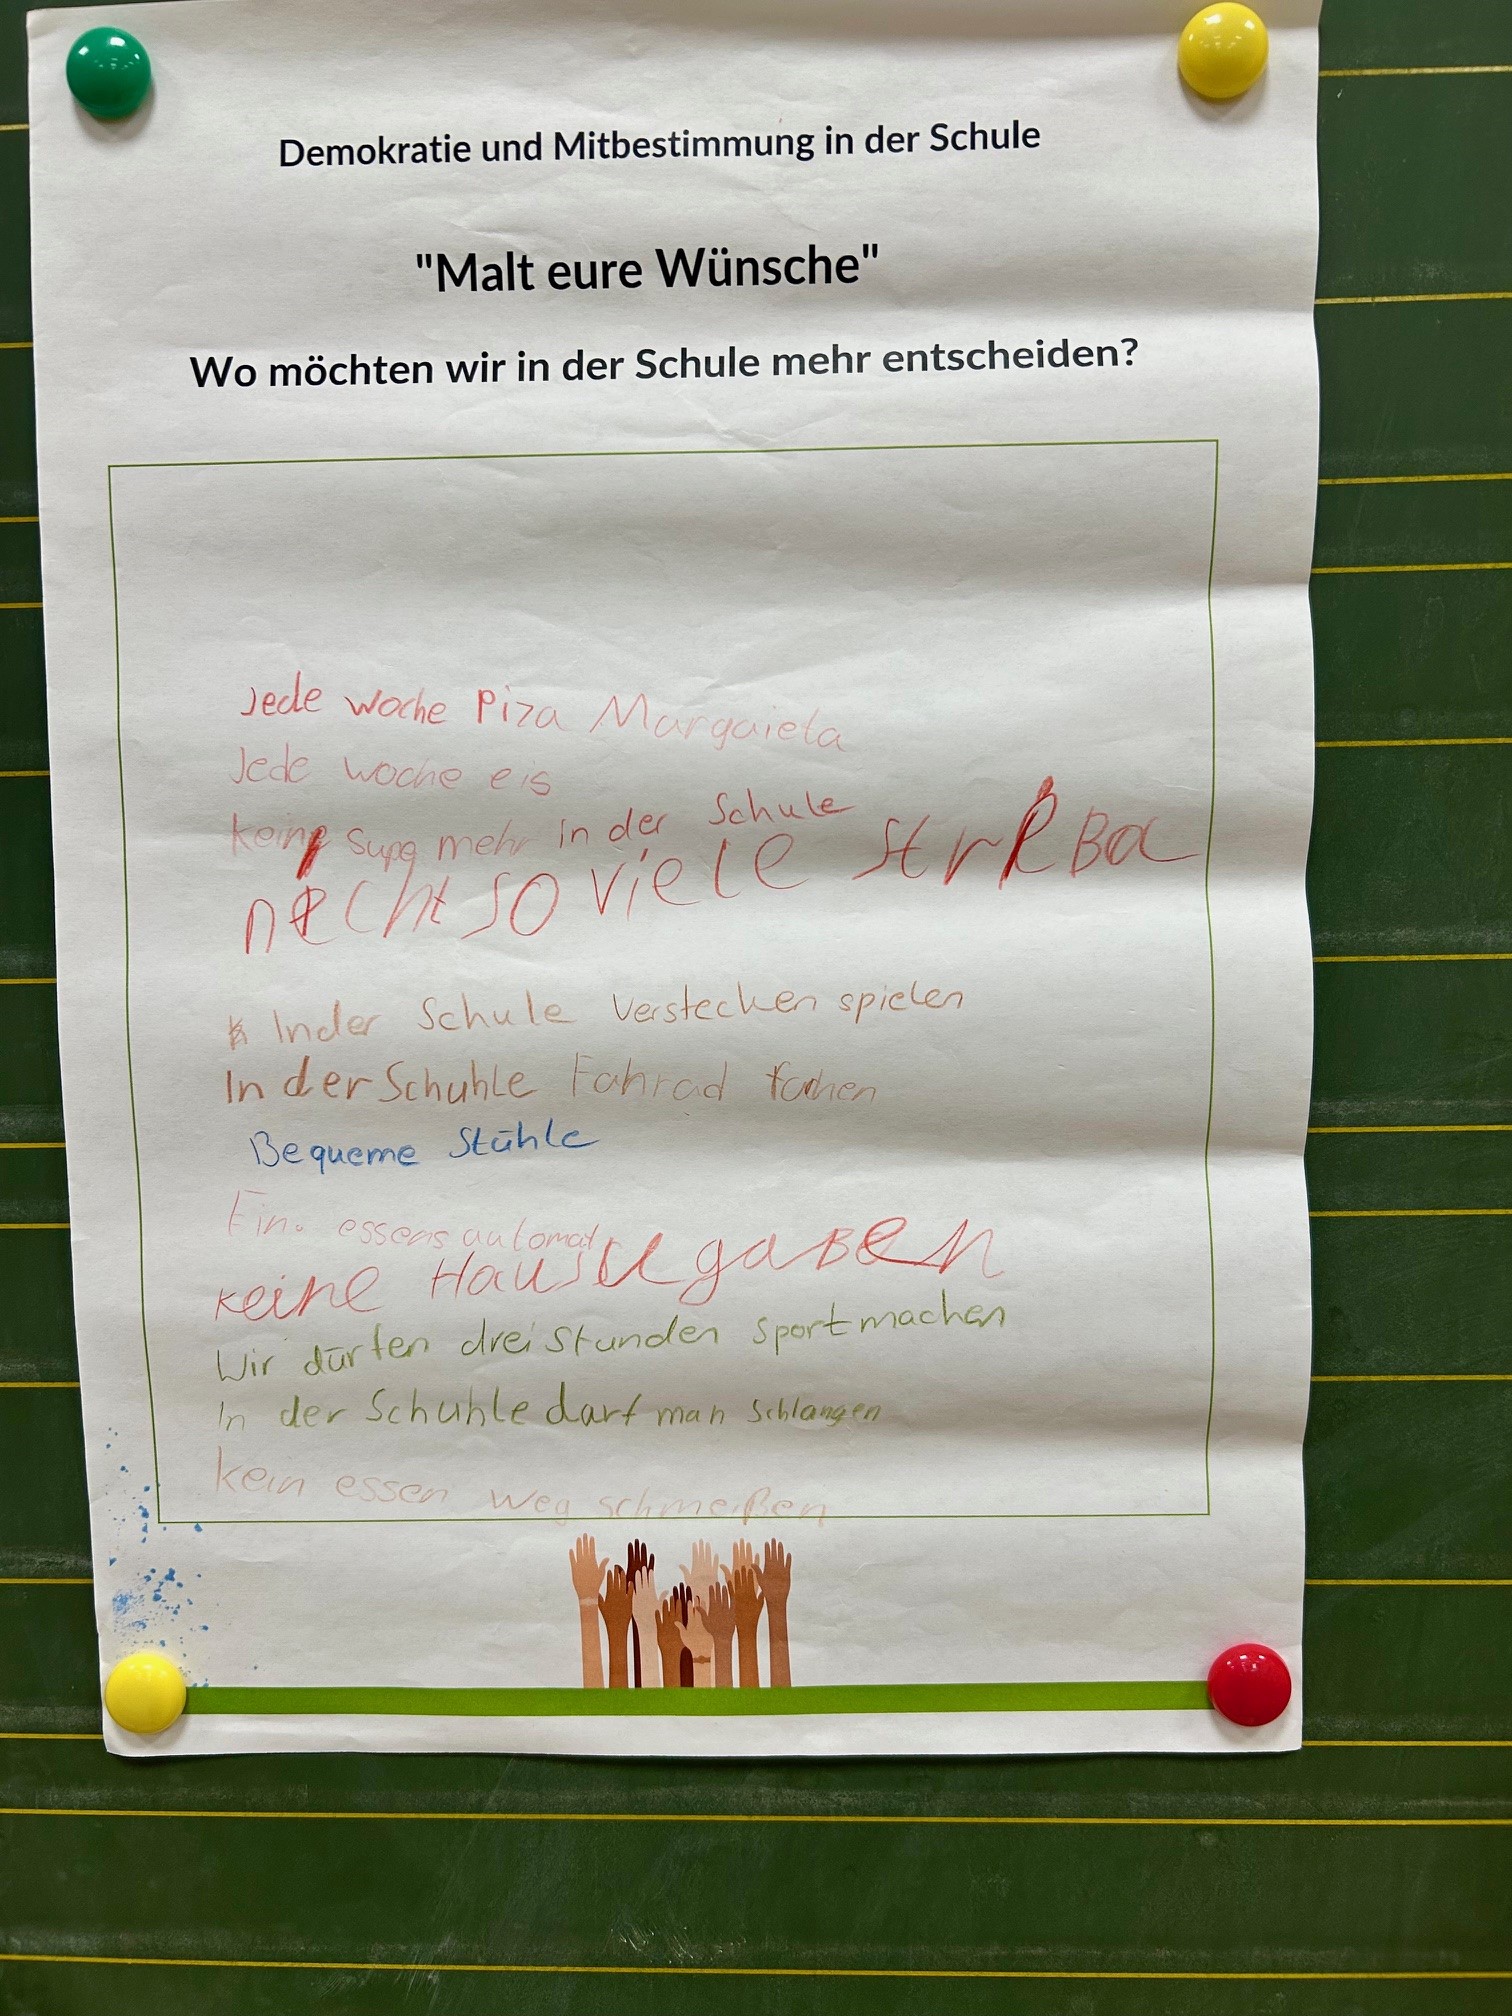 Demokratie und Mitbestimmung in der Schule
"Malt eure Wünsche"
Wo möchten wir in der Schule mehr entscheiden?
Jede woche Piza Margaiela
Jede woche eis
keine Supe mehr in der Schule
necht so viele strRBa
Inder Schule Verstecken spielen
In der Schuhle Fahrad fahen
Bequeme Stühle
Ein. essens automat
keine Hausugaben
Wir dürfen drei stunden sport machen
In der Schuhle darf man Schlangen
kein essen weg schmeißen